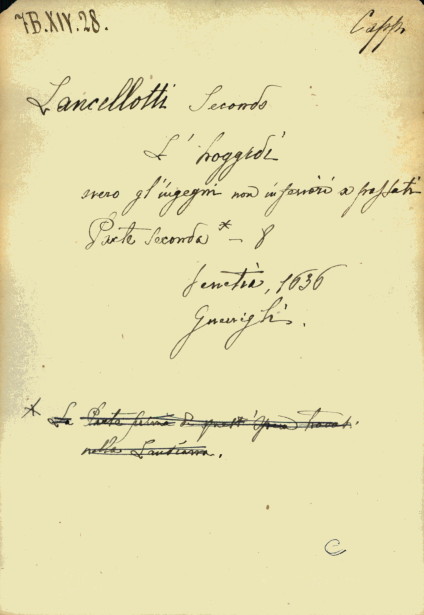 7B.XIV.28.
Capp.
Lancellotti Secondo
L' hoggidì
overo gl'ingegni non inferiori a passati
Parte Seconda * - 8
Venetia, 1636
Guerigli.
* La Parte prima di quest'opera trovasi
nella Landiana.
C